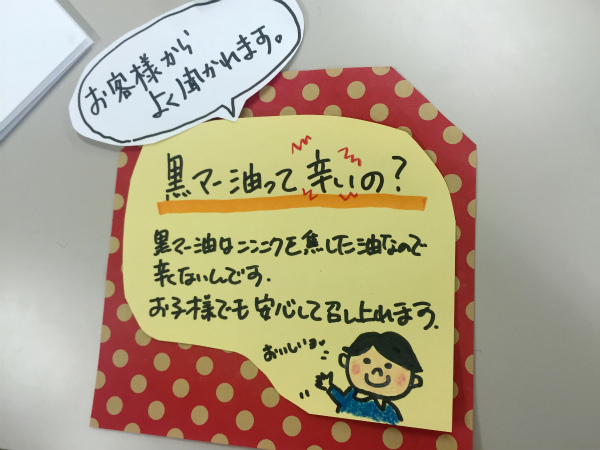 お客様から
よく聞かれます。
黒マー油って辛いの?
黒マー油はニンニクを焦した油なので
辛くないんです.
お子様でも安心して召し上れます.
おいしいョ♥